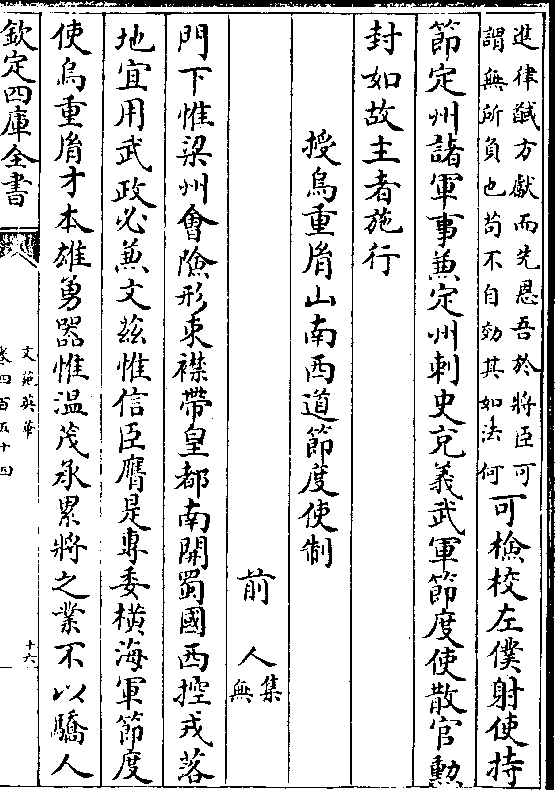 進律馘方獻而先恩吾於將臣可
謂無所負也苟不自効其如法何
可檢校左僕射使持
節定州諸軍事兼定州刺史充義武軍節度使散官勲
封如故主者施行
授烏重胤山南西道節度使制
前人
集無
門下惟梁州會險形束襟帶皇都南開蜀國西控戎落
地宜用武政必兼文茲惟信臣膺是專委橫海軍節度
使烏重胤才本雄勇器惟溫茂承累將之業不以驕人
欽定四庫全書
文苑英華
卷四百五十四
十六